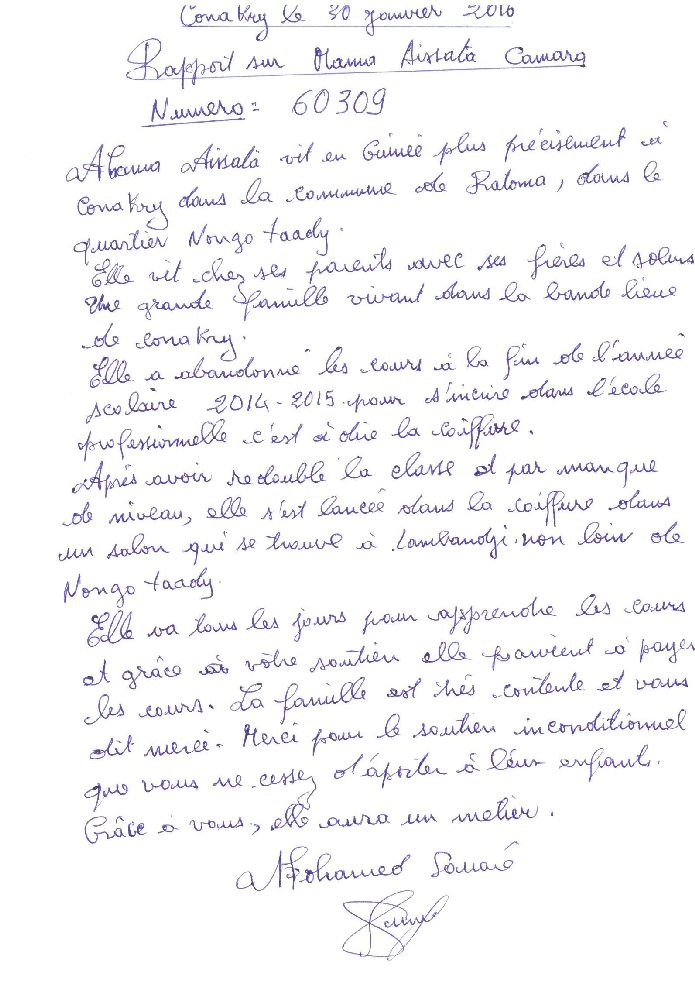 Conakry le 30 janvier 2016
Rapport sur Mama Aissata Camara
Numero = 60309
Mama Aissata vit en Guinée plus précisement à
Conakry dans la commune de Ratoma, dans le
quartier Nongo taady.
Elle vit chez ses parents avec ses frères et sœurs
Une grande famille vivant dans la bande lieue
de conakry.
Elle a abandonné les cours à la fin de l'année
scolaire 2014-2015 pour s'incrire dans l'école
professionnelle c'est à dire la coiffure.
Après avoir redoublé la classe et par manque
de niveau, elle s'est lancée dans la coiffure dans
un salon qui se trouve à Lambandji non loin de
Nongo taady.
Elle va tous les jours pour apprendre les cours
et grâce à vôtre soutien elle parvient à payer
les cours. La famille est très contente et vous
dit merci. Merci pour le soutien inconditionnel
que vous ne cessez d'aporter à leur enfant.
Grâce à vous, elle aura un metier.
Mohamed